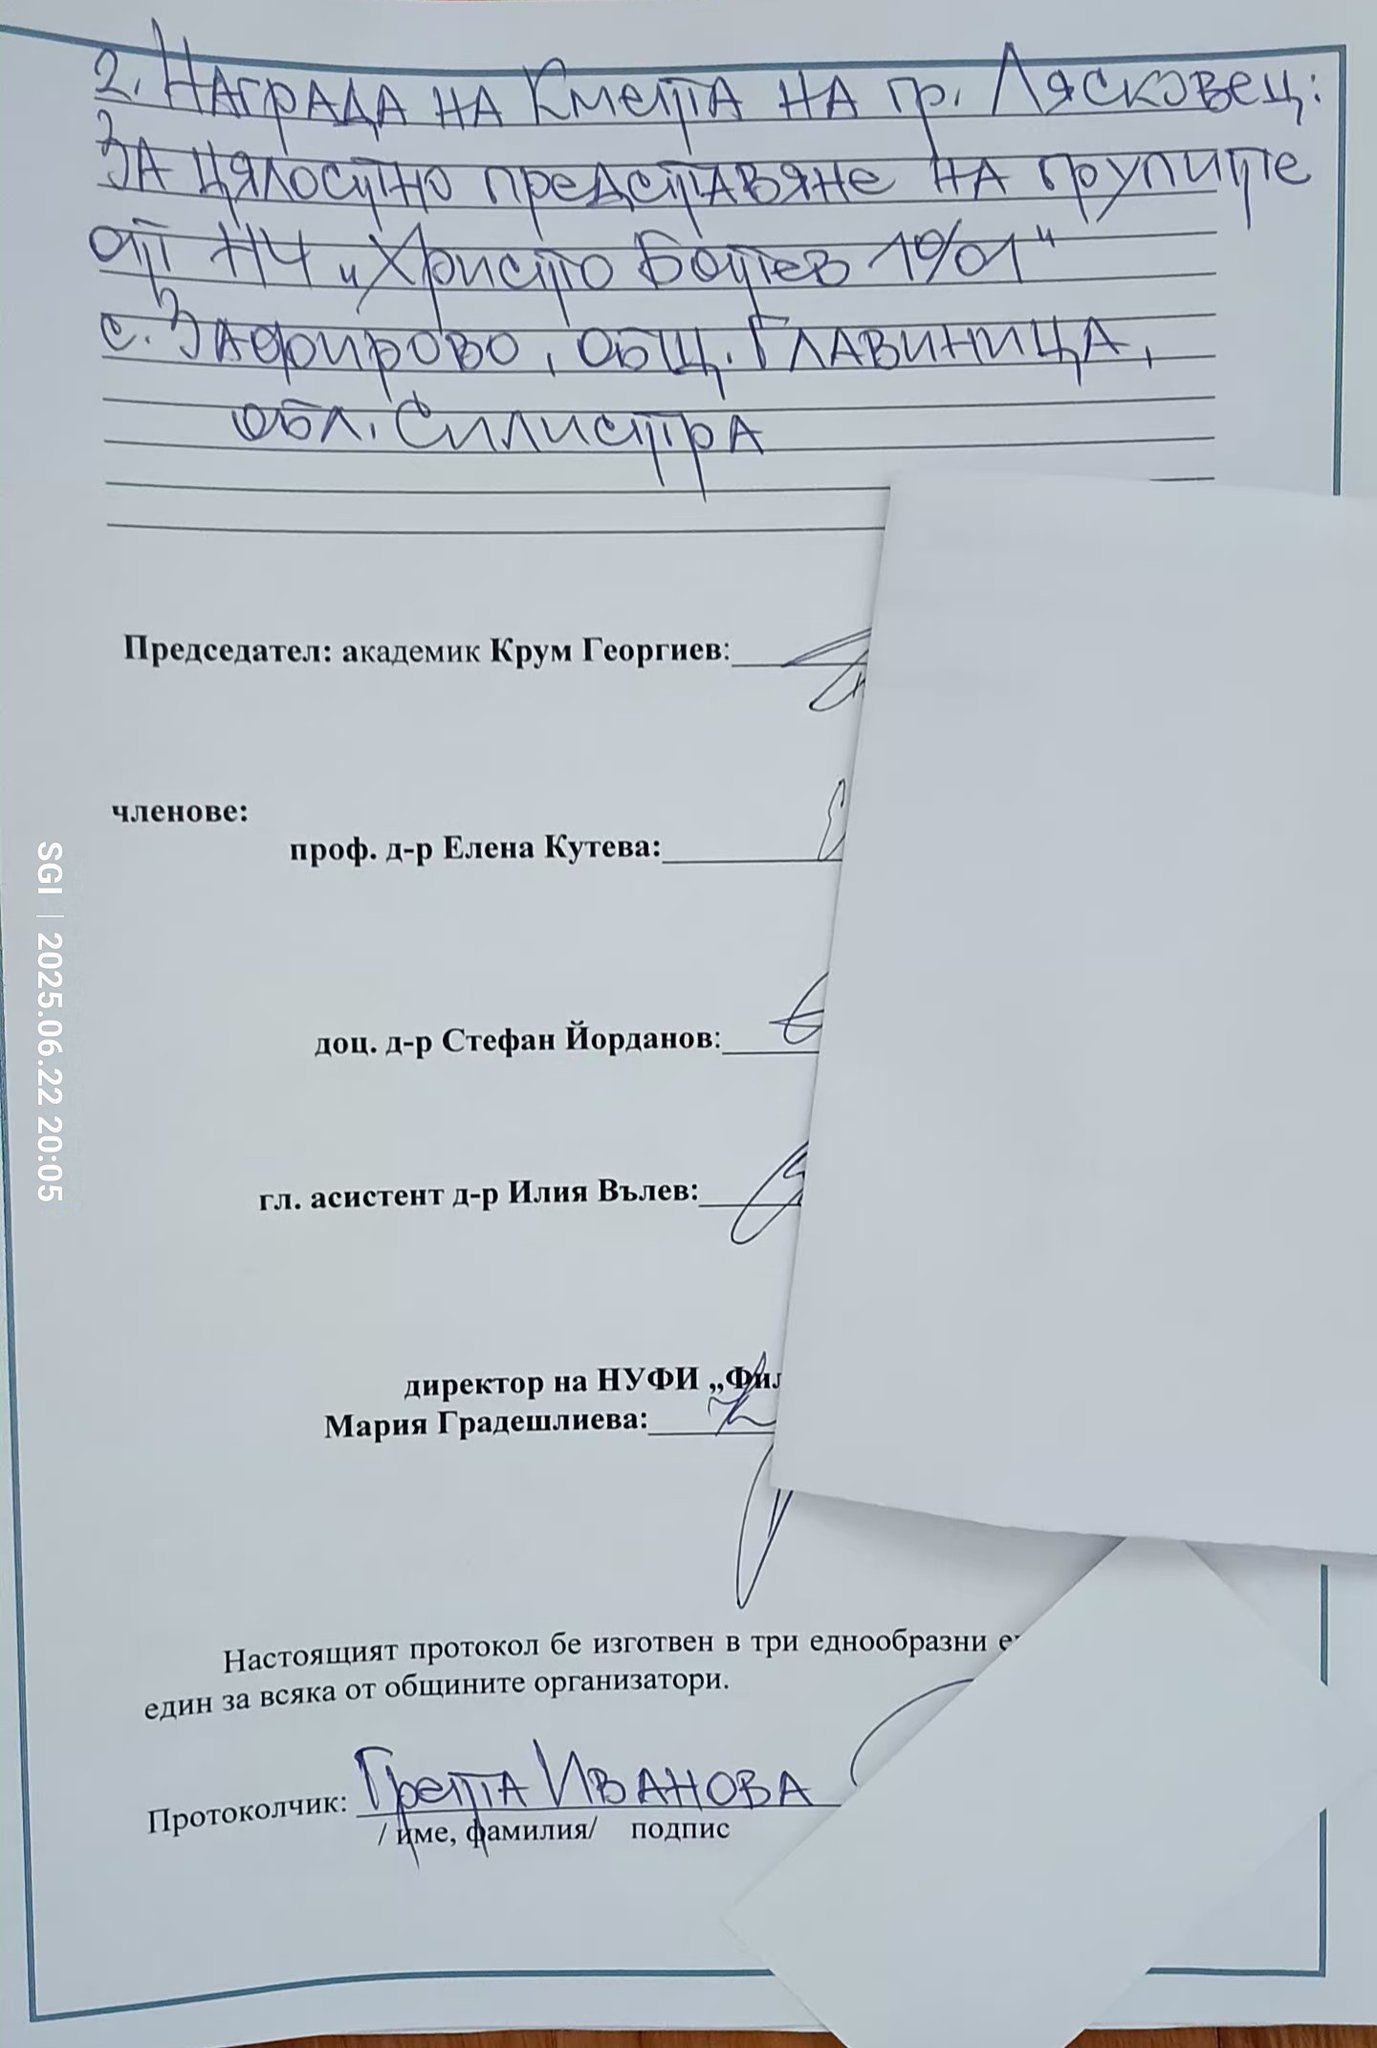 2. Награда на Кмета на гр. Лясковец:
За цялостно представяне на групите
от НЧ „Христо Ботев 1901"
с. Зафирово, общ. Главиница,
обл. Силистра
Председател: академик Крум Георгиев:
членове:
проф. д-р Елена Кутева:
доц. д-р Стефан Йорданов:
гл. асистент д-р Илия Вълев:
директор на НУФИ „Фил
Мария Градешлиева:
Настоящият протокол бе изготвен в три еднообразни
един за всяка от общините организатори.
Протоколчик: Грета Иванова
/ име, фамилия/ подпис
SGI | 2025.06.22 20:05